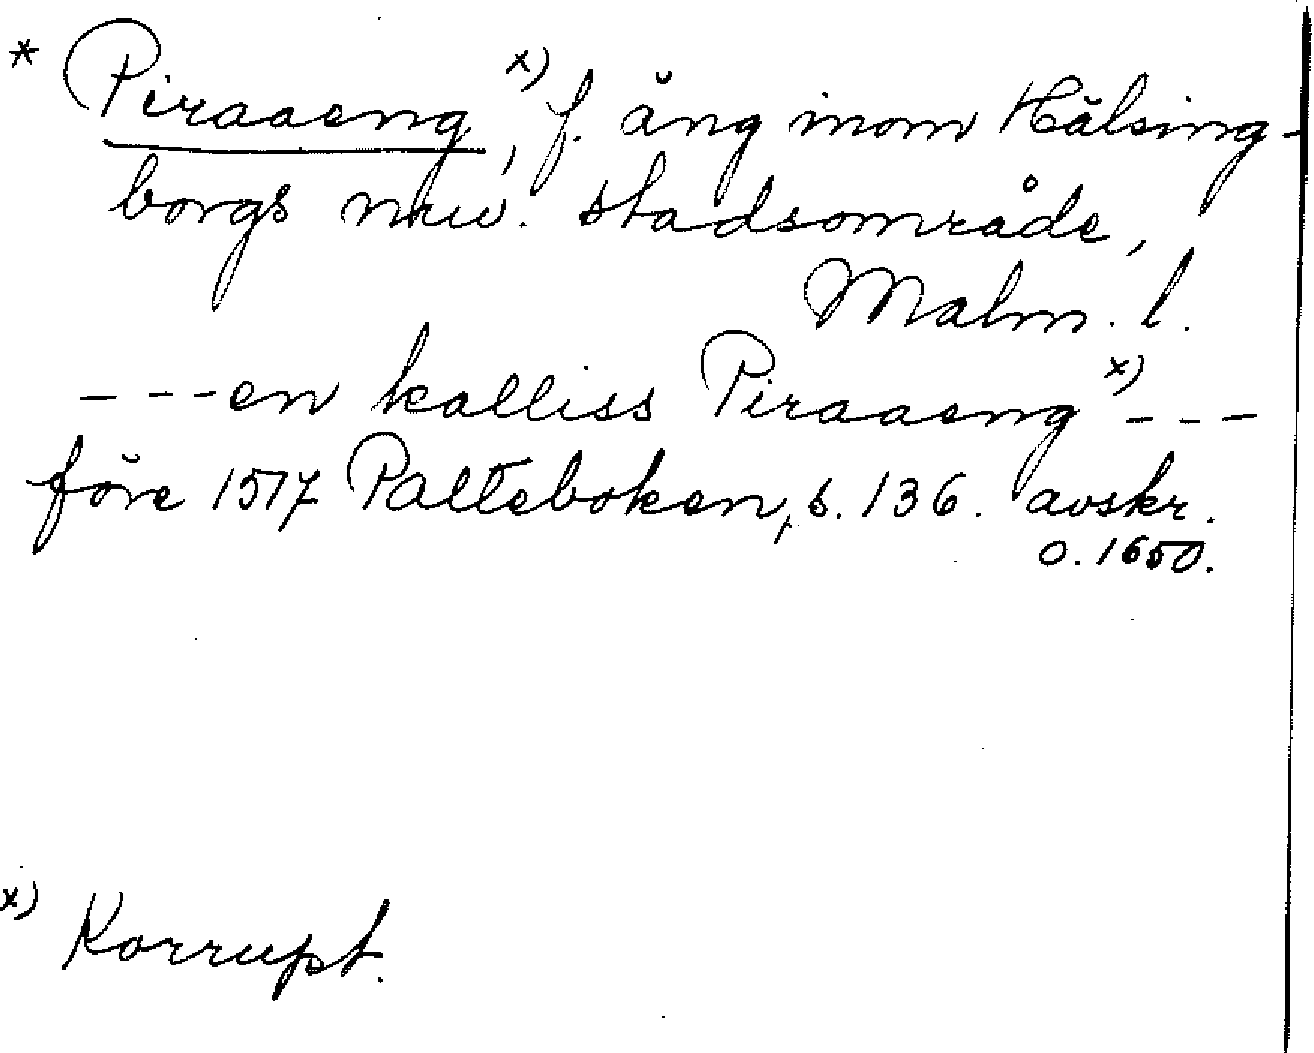 * Piraaeng, x) f. äng inom Hälsing-
borgs nuv. stadsområde,
Malm. l.
---en kalliss Piraaeng x)---
före 1517 Palteboken, s. 136. avskr.
o. 1650.
x) Korrupt.